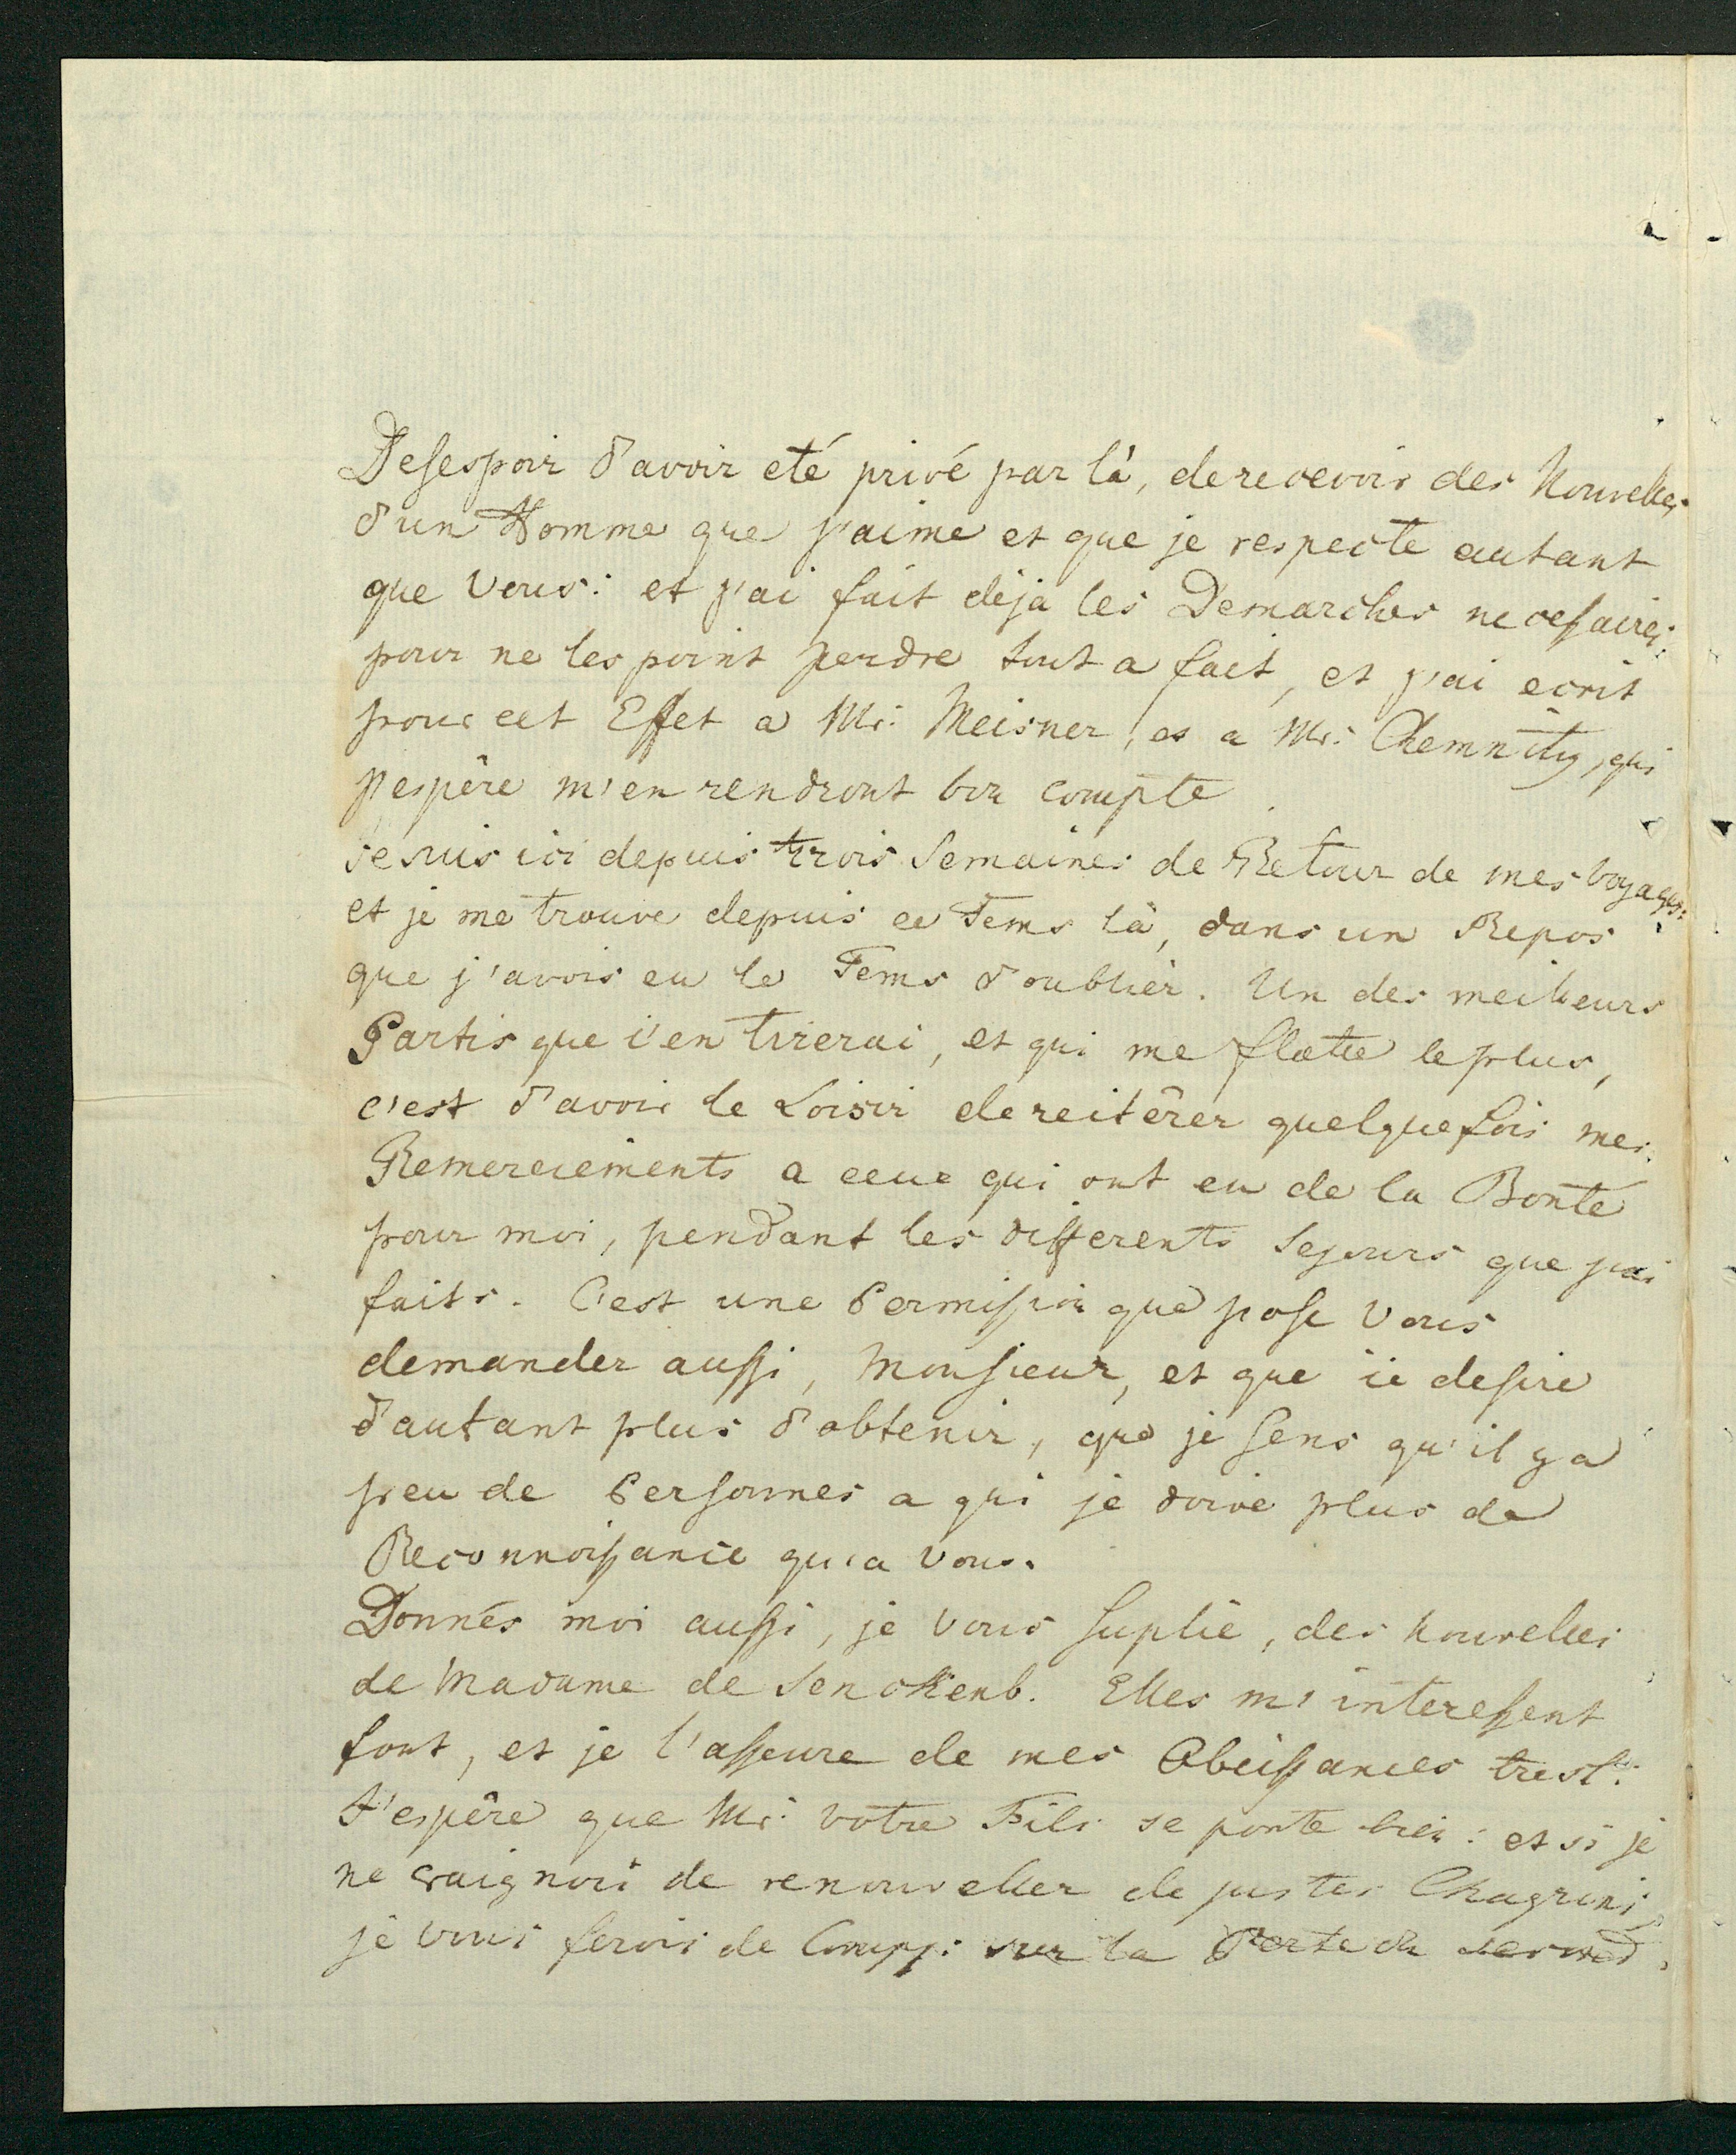 Desespoir d'avoir eté privé par là, de recevoir des Nouvelles
d'un Homme que j'aime et que je respecte autant
que vous: et j'ai fait dèja les Demarches necessaires
pour ne les point perdre tout a fait, et j'ai ecrit
pour cet Effet a Mr: Meisner, et a Mr: Chemnitz, qui
j'espère m'en rendront bon compte.
Je suis ici depuis trois Semaines de Retour de mes voyages:
et je me trouve depuis ce Tems là, dans un Repos
que j'avois eu le Tems d'oublier. Un des meilleurs
Partis que j'en tirerai, et qui me flatte le plus,
c'est d'avoir le Loisir de reitèrer quelquefois mes
Remerciements a ceux qui ont eu de la Bonté
pour moi, pendant les differents Sejours que j'ai
faits. C'est une Permission que j'ose Vous
demander aussi, Monsieur, et que je desire
d'autant plus d'obtenir, que je sens qu'il y a
peu de Personnes a qui je doive plus de
Reconnoissance qu'a Vous.
Donnés moi aussi, je Vous suplie, des nouvelles
de Madame de Senckenb. Elles m'interessent
fort, et je l'asseure de mes Obeissances
J'espère que Mr: votre Fils se porte bien: et si je
ne craignois de renouveller de justes Chagrins
je vous ferois de Comp: sur la Perte du